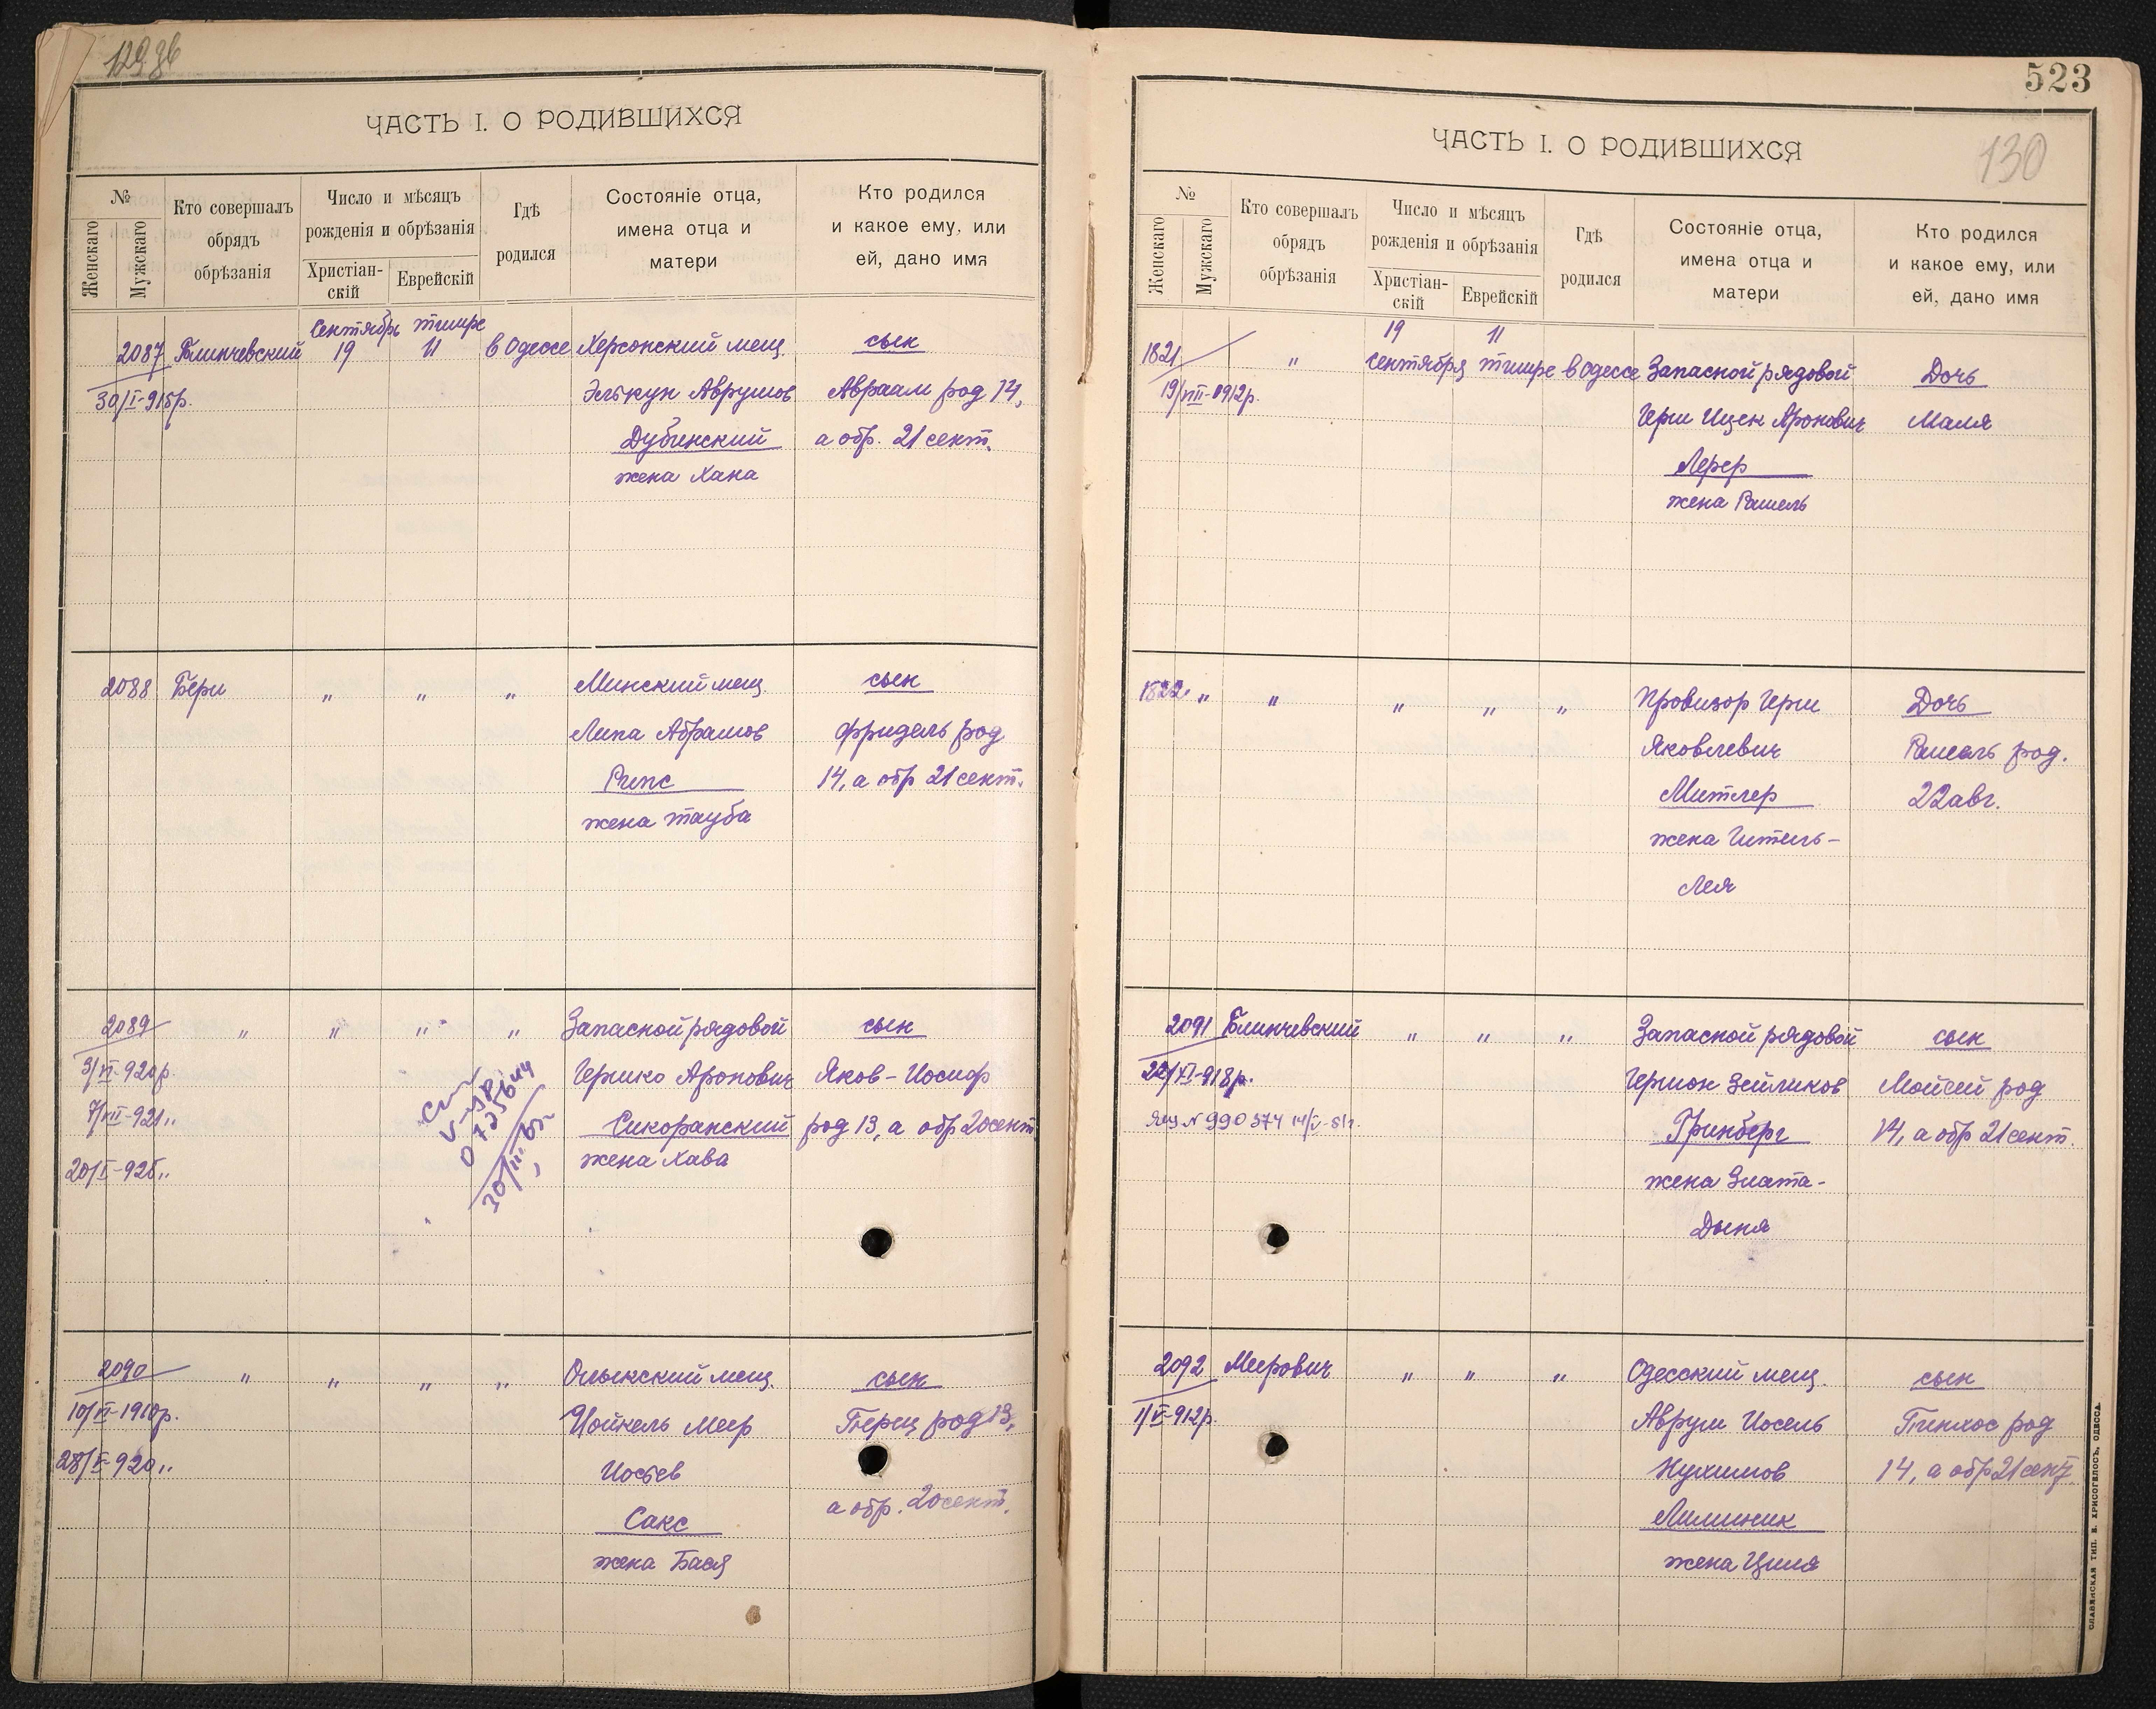 129 зв
ЧАСТЬ I. О РОДИВШИХСЯ
№
Женскаго
Мужскаго
Кто совершалъ
обрядъ
обрѣзанія
Число и мѣсяцъ
рожденія и обрѣзанія
Христіан-
скій
Еврейскій
Гдѣ
родился
Состояніе отца,
имена отца и
матери
Кто родился
и какое ему, или
ей, дано имя
Сентябрь тишре
2087 Блинчевский 19 11 в Одессе Херсонский мещ. сын
30/I-915р. Элькун Аврумов Авраам род 14,
Дубинский а обр. 21 сент.
жена Хана
2088 Бери " " " Минский мещ сын
Липа Абрамов Фридель род
Рипс 14, а обр 21 сент.
жена Тауба
2089 " " " " Запасной рядовой сын
3/VI-920р. Гершко Аронович Яков-Иосиф
7/XII-921" Сикоранский род 13, а обр 20 сент
20/I-925" жена Хава
30/III-65
2090 " " " " Олыкский мещ. сын
10/VI-1910р. Йойкель Меер Перец род 13,
28/V-920" Иосев
а обр. 20 сент.
Сакс
жена Бася
523
130
ЧАСТЬ I. О РОДИВШИХСЯ
№
Женскаго
Мужскаго
Кто совершалъ
обрядъ
обрѣзанія
Число и мѣсяцъ
рожденія и обрѣзанія
Христіан-
скій
Еврейскій
Гдѣ
родился
Состояніе отца,
имена отца и
матери
Кто родился
и какое ему, или
ей, дано имя
19 11
1821 " сентября тишре в Одессе Запасной рядовой Дочь
19/VIII-912р. Герш Ицек Аронович Маля
Лерер
жена Рашель
1822 " " " " " Провизор Герш Дочь
Яковлевич Рашель род.
Митлер 22 авг.
жена Гитель-
Лея
2091 Блинчевский " " " Запасной рядовой сын
22/XI-918р. Гершон Зейликов Мойсей род
№ 990574 14/V-51г. Гринберг 14, а обр 21 сент.
жена Злата-
Дыня
2092 Меерович " " " Одесский мещ. сын
1/V-912р. Аврум Иосель Пинхос род
Нухимов 14, а обр 21 сент
Лиминик
жена Циля
СЛАВЯНСКАЯ ТИП. Е. ХРИСОГЕЛОСЪ, ОДЕССА.